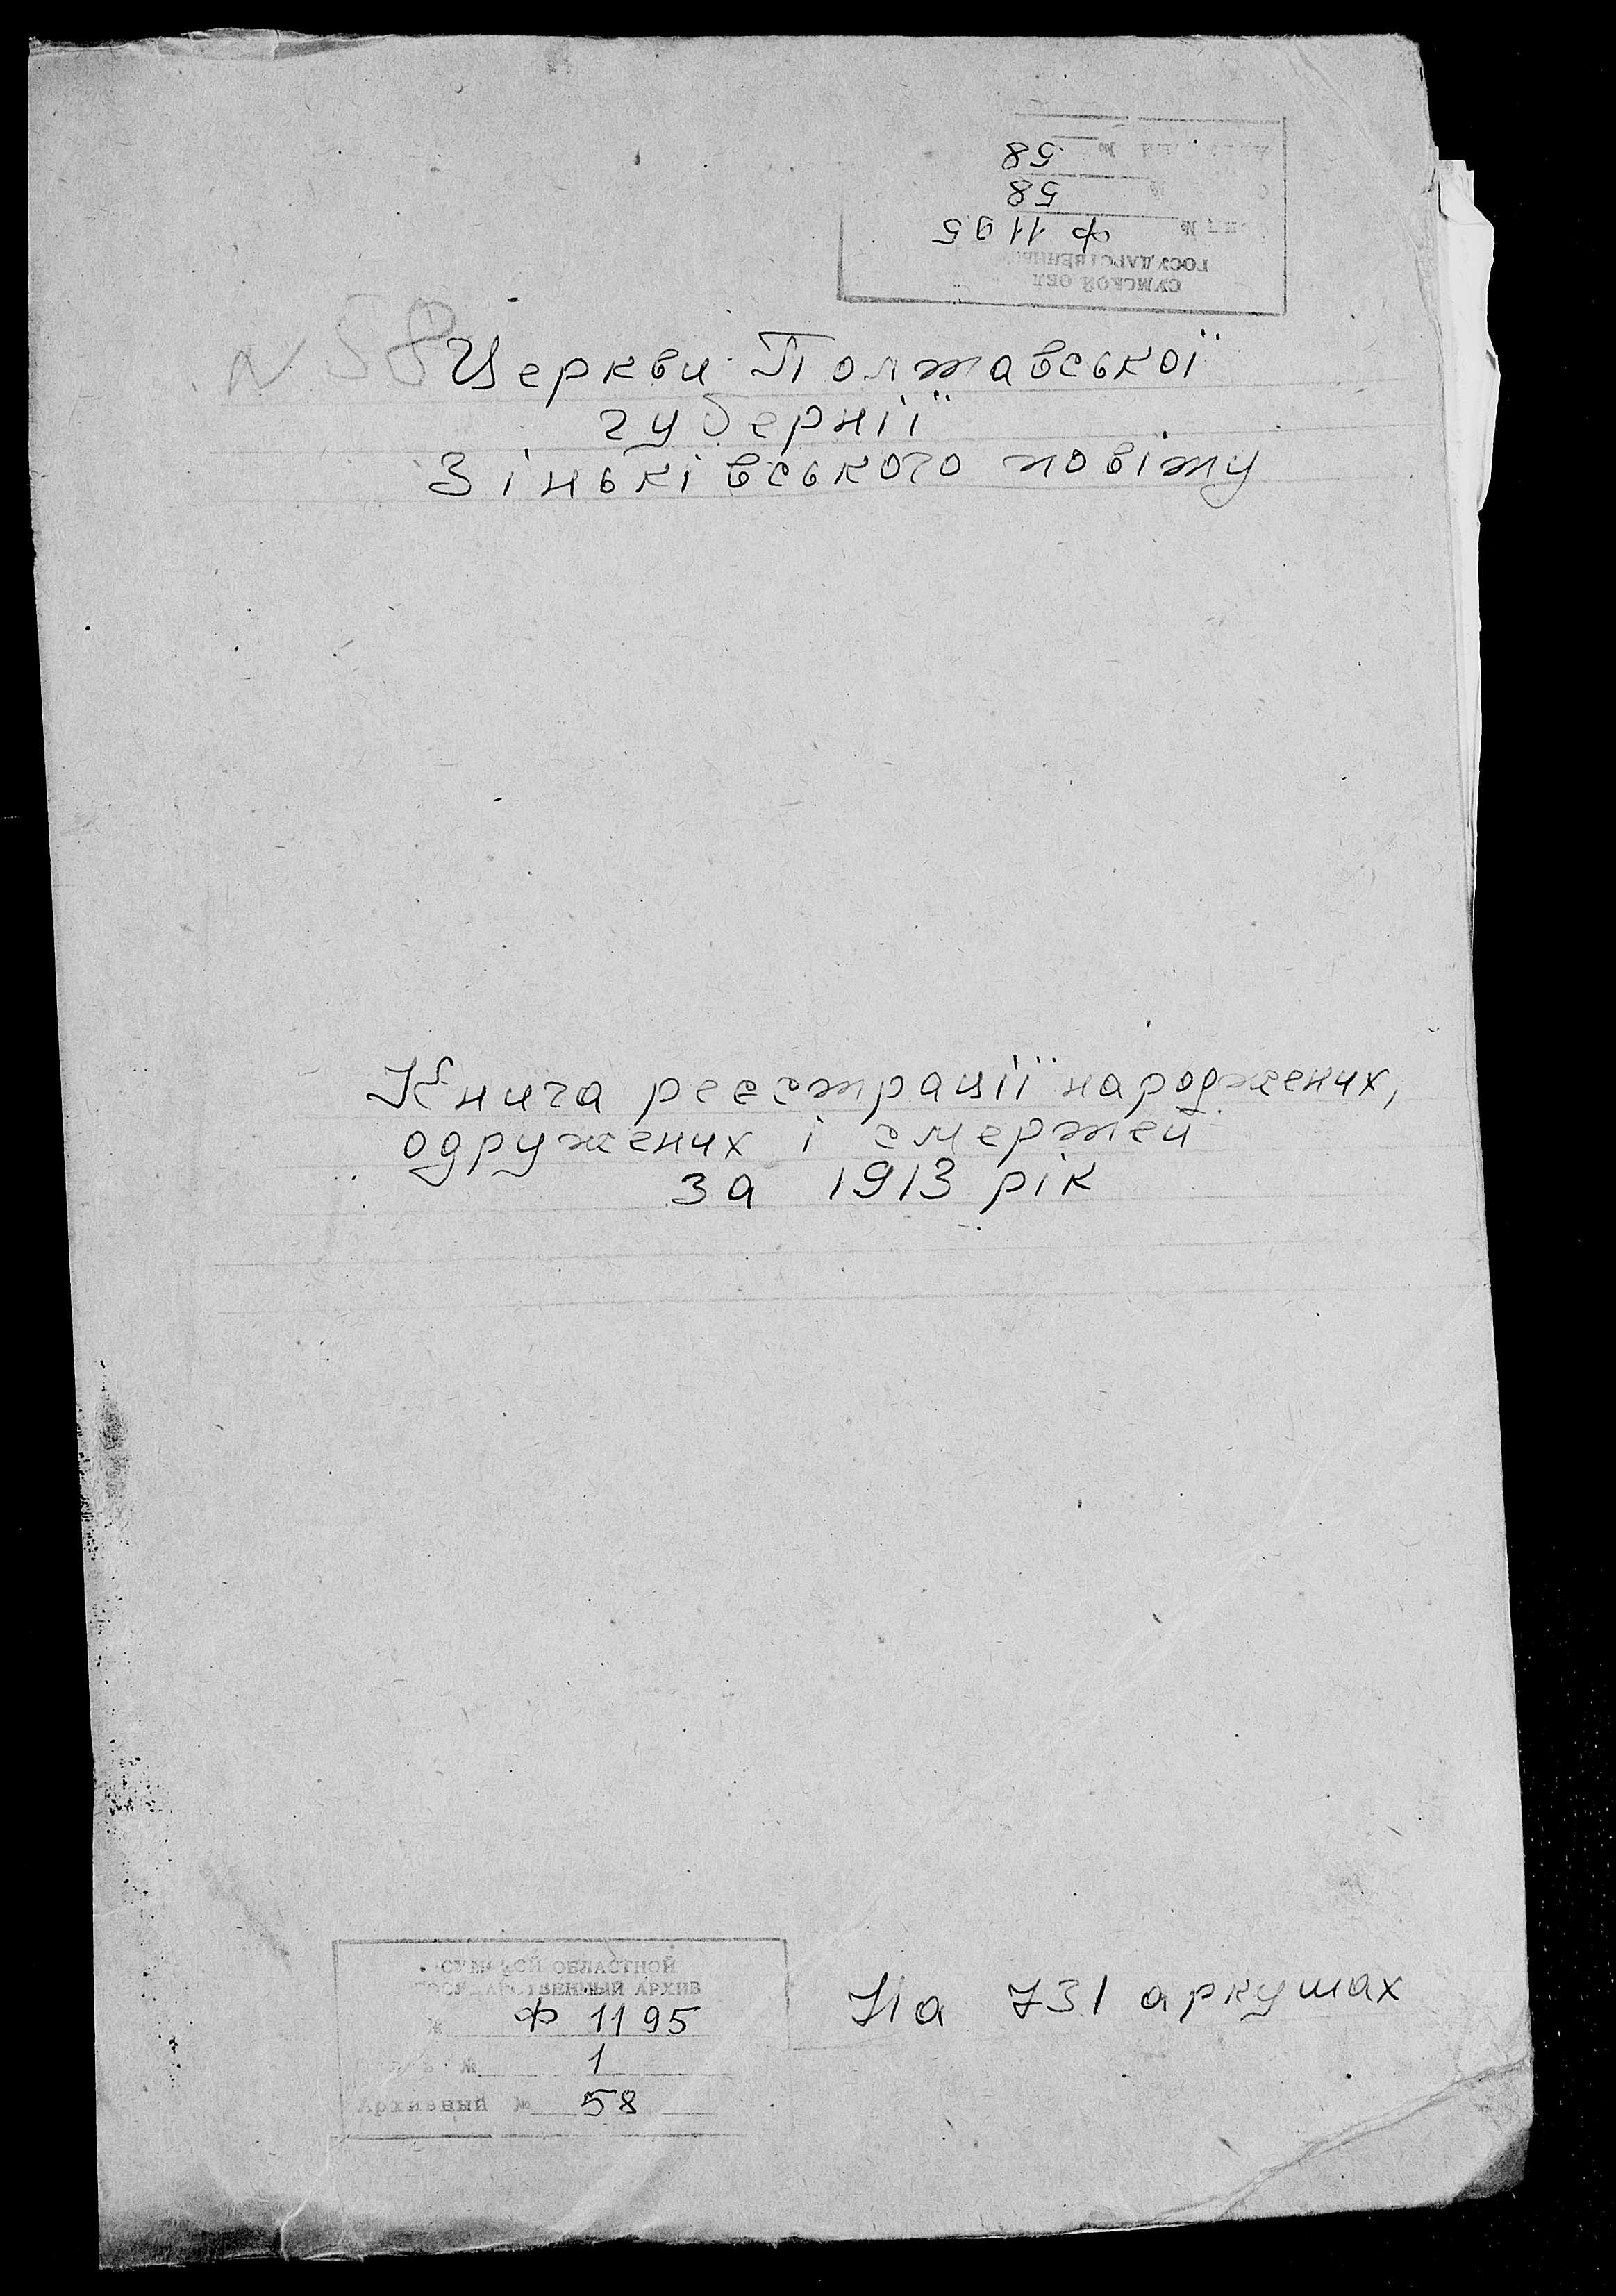 СУМСКОЙ ОБЛ
ГОСУДАРСТВЕННЫЙ
№ Ф 1195
№ 58
№ 58
N 58
Церкви Полтавської
губернії
Зіньківського повіту
Книга реєстрації народжених,
одружених і смертей
за 1913 рік
СУМСКОЙ ОБЛАСТНОЙ
ГОСУДАРСТВЕННЫЙ АРХИВ
№ Ф 1195
№ 1
Архивный № 58
На 731 аркушах